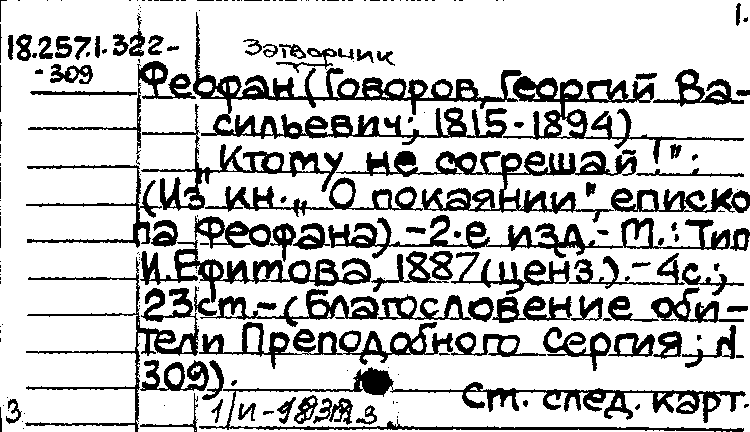 1.
18.257.1.322-
-309
Затворник
Феофан (Говоров, Георгий Ва-
сильевич; 1815-1894)
„Ктому не согрешай!":
(Из кн. „О покаянии", еписко
па Феофана). -2-е изд.- М.: Тип
И.Ефимова, 1887(ценз.). - 4с.;
23 см. - (Благословение оби-
тели Преподобного Сергия; N
309).
См. след. карт.
3
1/И-